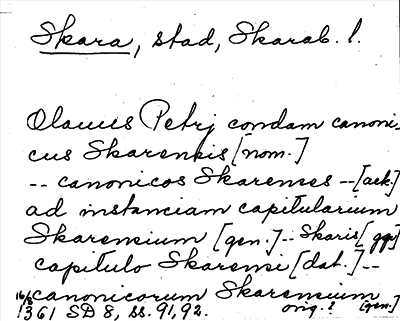 Skara, stad, Skarab. l.
Olauus Petrj condam canoni-
cus Skarensis [nom.]
-- canonicos Skarenses -- [ack.]
ad instanciam capitularium
Skarensium [gen.] -- Skaris [ggs]
capitulo Skarensi [dat.] --
canonicorum Skarensium
1361 SD 8, ss. 91, 92. orig.! [gen.]